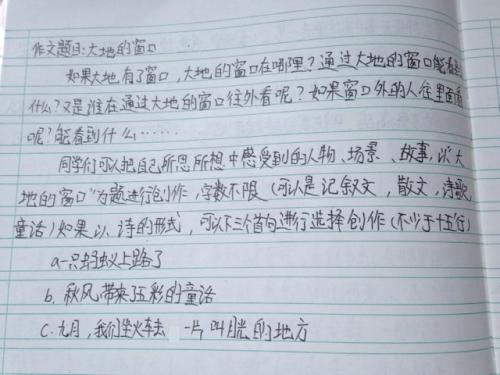 作文题目:大地的窗口
如果大地有了窗口,大地的窗口在哪里?通过大地的窗口能看到
什么?又是谁在通过大地的窗口往外看呢?如果窗口外的人往里面看
呢?能看到什么……
同学们可以把自己所思所想中感受到的人物、场景、故事,以“大
地的窗口”为题进行创作,字数不限(可以是记叙文,散文,诗歌
童话)如果以诗的形式,可以下三个首句进行选择创作(不少于十五行)
a一只蚂蚁上路了
b.秋风带来了五彩的童话
c.九月,我们坐火车去 一片叫的地方